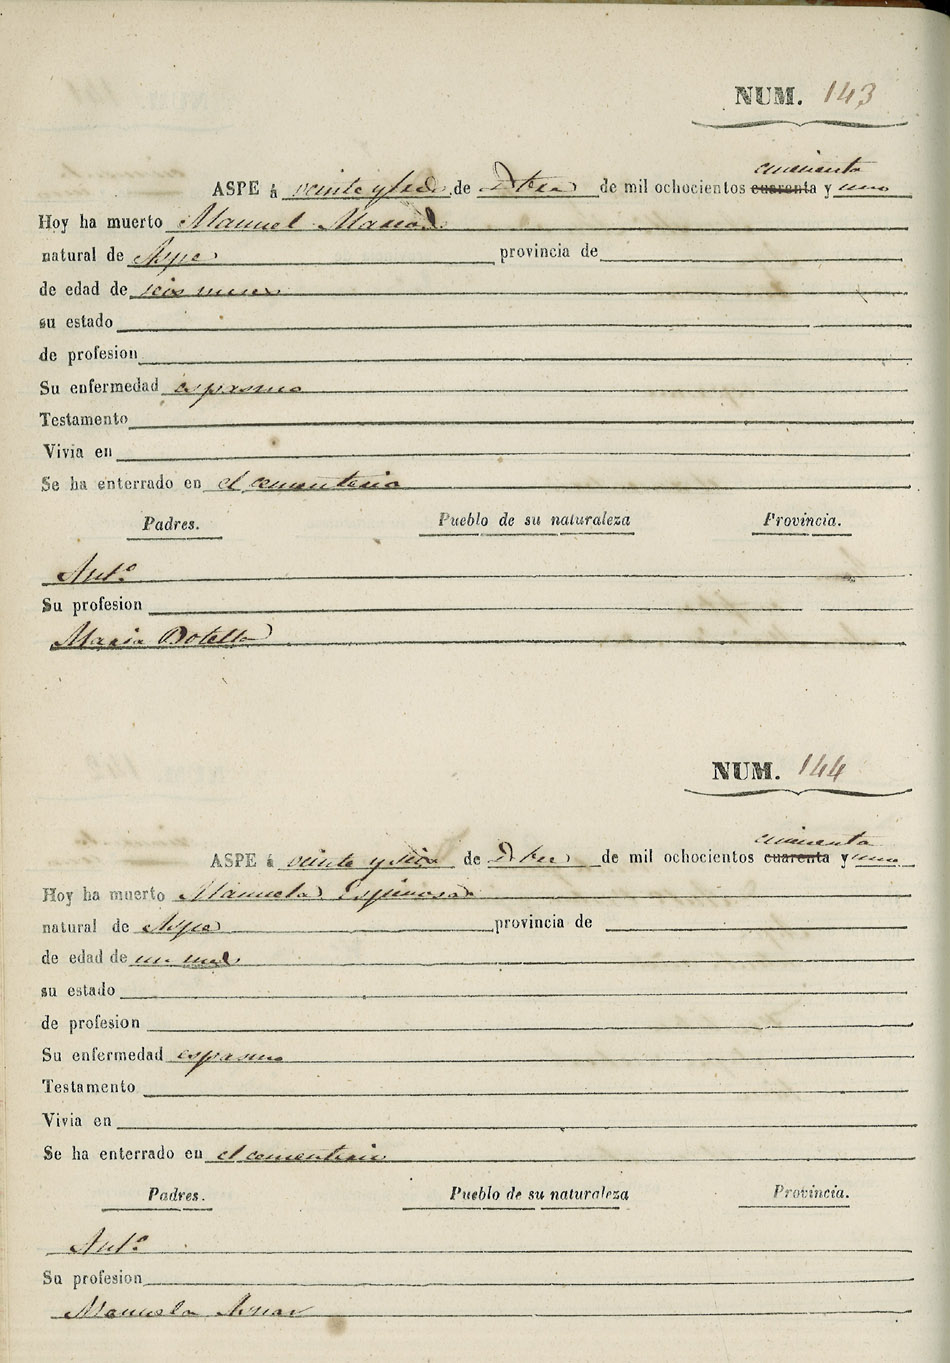 NUM. 143
cincuenta
ASPE á veinte y seis de Dbre de mil ochocientos cuarenta y uno
Hoy ha muerto Manuel
natural de Aspe provincia de
de edad de seis meses
su estado
de profesion
Su enfermedad espasmo
Testamento
Vivia en
Se ha enterrado en el cementerio
Padres. Pueblo de su naturaleza Provincia.
Antº
Su profesion
Maria Botella
NUM. 144
cincuenta
ASPE á veinte y seis de Dbre de mil ochocientos cuarenta y uno
Hoy ha muerto Manuela Espinosa
natural de Aspe provincia de
de edad de un mes
su estado
de profesion
Su enfermedad espasmo
Testamento
Vivia en
Se ha enterrado en el cementerio
Padres. Pueblo de su naturaleza Provincia.
Antº
Su profesion
Manuela Aznar